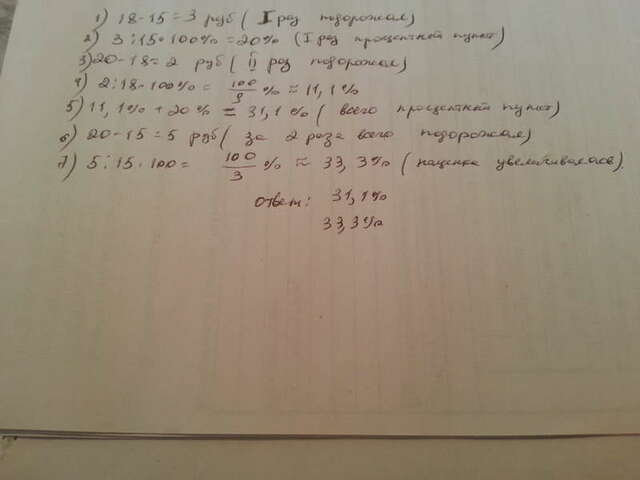 1) 18-15=3 руб ( I раз подорожал)
2) 3:15·100%=20% (I раз процентный пункт)
3) 20-18=2 руб ( II раз подорожал)
4) 2:18·100%= 100/9 % ≈ 11,1%
5) 11,1% + 20% = 31,1% ( всего процентный пункт)
6) 20-15=5 руб ( за 2 раза всего подорожал)
7) 5:15·100= 100/3 % ≈ 33,3% ( наценка увеличивалась).
ответ: 31,1%
33,3%